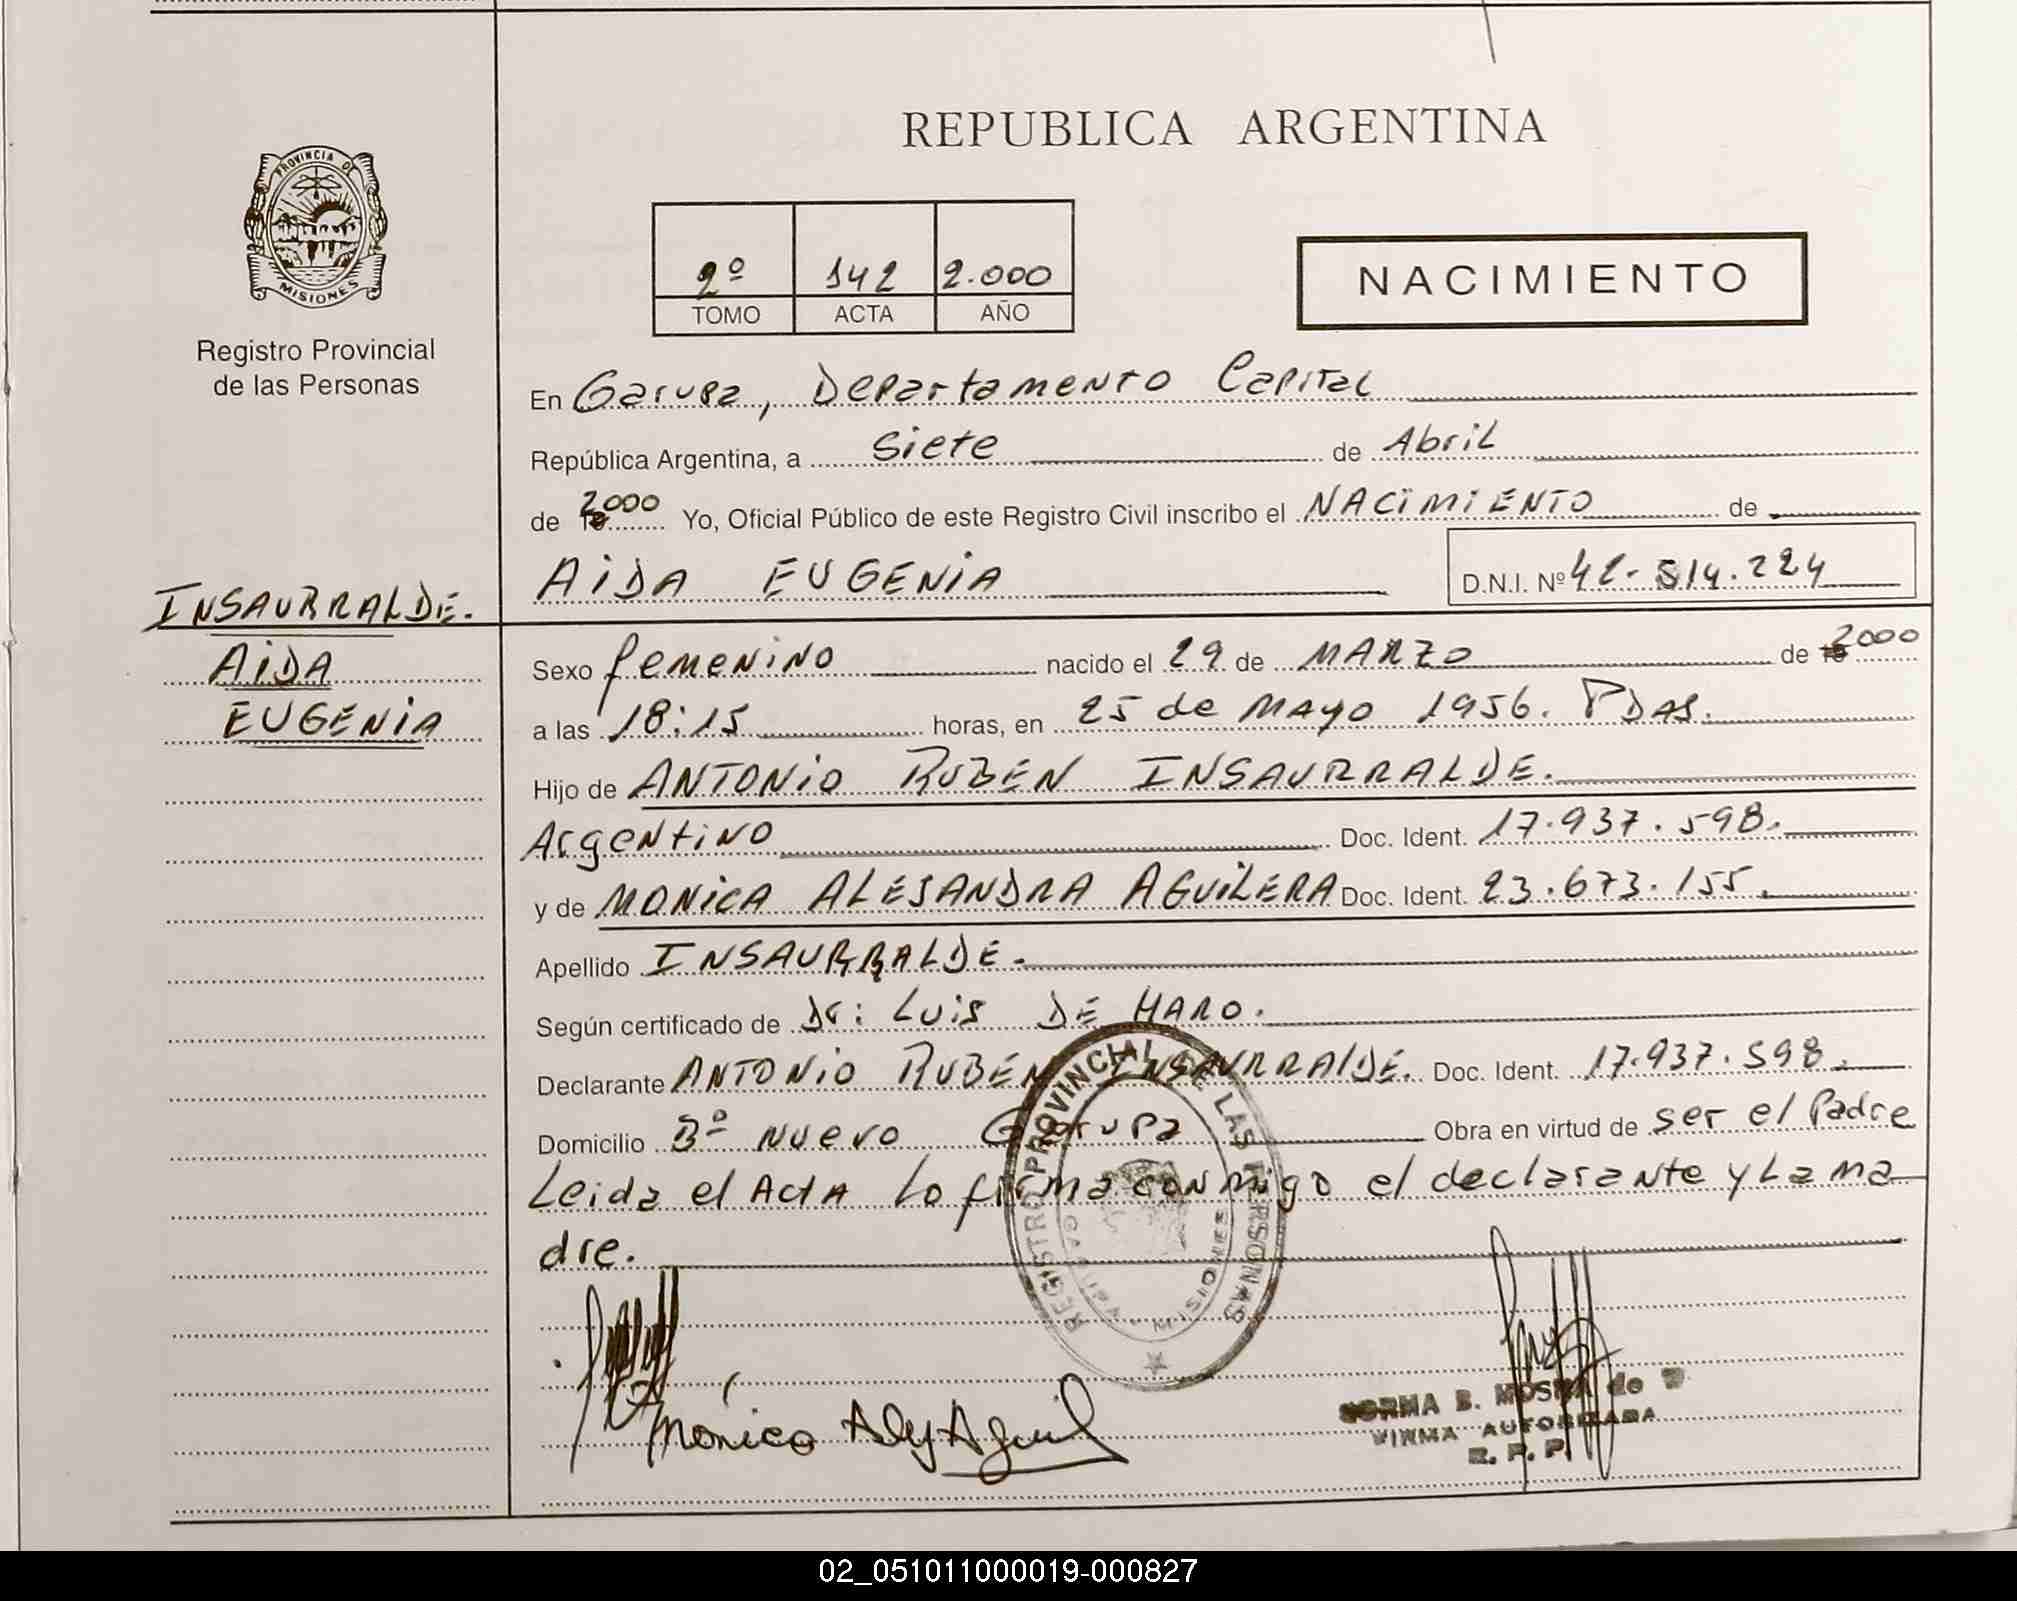 REPUBLICA ARGENTINA
PROVINCIA DE
MISIONES
Registro Provincial
de las Personas
2º 142 2.000
TOMO ACTA AÑO
NACIMIENTO
En Garupa, Departamento Capital
República Argentina, a Siete de Abril
de 2000 Yo, Oficial Público de este Registro Civil inscribo el NACIMIENTO de
AIDA EUGENIA D.N.I. Nº 42.514.224
INSAURRALDE.
AIDA
EUGENIA
Sexo femenino nacido el 29 de MARZO de 2000
a las 18:15 horas, en 25 de Mayo 1956. PDAS.
Hijo de ANTONIO RUBEN INSAURRALDE.
Argentino Doc. Ident. 17.937.598.
y de MONICA ALEJANDRA AGUILERA Doc. Ident. 23.673.155.
Apellido INSAURRALDE.
Según certificado de Dr: LUIS DE HARO.
Declarante ANTONIO RUBEN INSAURRALDE. Doc. Ident. 17.937.598.
Domicilio Bº NUEVO Garupa Obra en virtud de ser el Padre
Leida el ActA Lo firma conmigo el declarante y La ma
dre.
REGISTRO PROVINCIAL DE LAS PERSONAS
MISIONES
Mónica Alej Aguil
NORMA B. de
FIRMA AUTORIZADA
R. P. P.
02_051011000019-000827